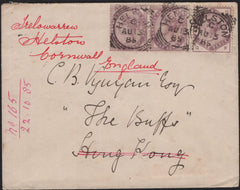 Trelowarren
Helston
Cornwall
England
C. B. Vyvyan Esq
"The Buffs"
Hong Kong
22.10.85
HELSTON
C
AU 13
85